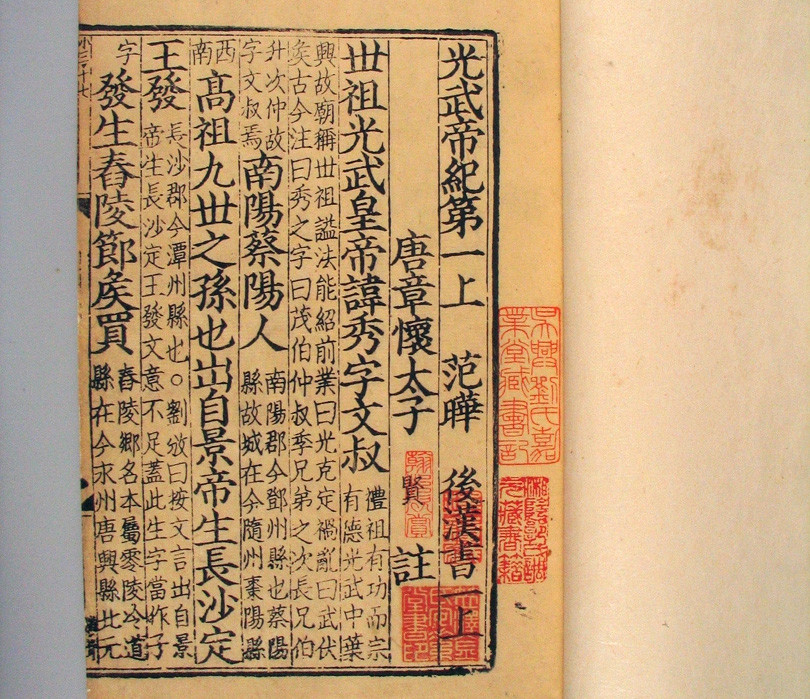 光武帝紀第一上 范曄 後漢書一上
唐章懷太子賢註
丗祖光武皇帝諱秀字文叔
禮祖有功而宗
有德光武中葉
興故廟稱丗祖謚法能紹前業曰光克定禍亂曰武伏
矦古今注曰秀之字曰茂伯仲叔季兄弟之次長兄伯
升次仲故
字文叔焉
南陽蔡陽人
南陽郡今鄧州縣也蔡陽
縣故城在今隨州棗陽縣
西
南
髙祖九丗之孫也出自景帝生長沙定
王發
長沙郡今潭州縣也○劉攽曰按文言出自景
帝生長沙定王發文意不足蓋此生字當作子
字
發生舂陵節矦買
舂陵鄉名本屬零陵泠道
縣在今永州唐興縣北元
小三十七
吳興劉氏嘉
業堂藏書記